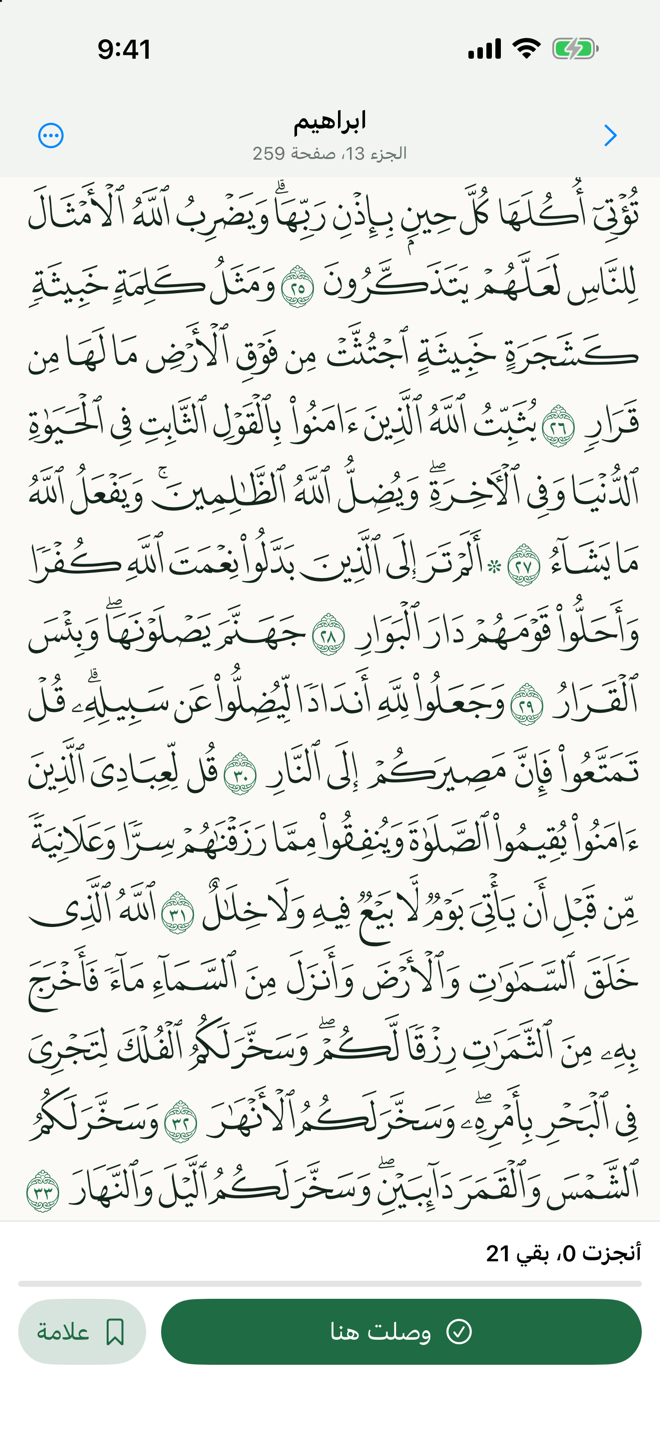 9:41
ابراهيم
الجزء 13، صفحة 259
تُؤْتِىٓ أُكُلَهَا كُلَّ حِينٍۭ بِإِذْنِ رَبِّهَاۗ وَيَضْرِبُ ٱللَّهُ ٱلْأَمْثَالَ
لِلنَّاسِ لَعَلَّهُمْ يَتَذَكَّرُونَ ٢٥ وَمَثَلُ كَلِمَةٍ خَبِيثَةٍ
كَشَجَرَةٍ خَبِيثَةٍ ٱجْتُثَّتْ مِن فَوْقِ ٱلْأَرْضِ مَا لَهَا مِن
قَرَارٍ ٢٦ يُثَبِّتُ ٱللَّهُ ٱلَّذِينَ ءَامَنُوا۟ بِٱلْقَوْلِ ٱلثَّابِتِ فِى ٱلْحَيَوٰةِ
ٱلدُّنْيَا وَفِى ٱلْـَٔاخِرَةِۖ وَيُضِلُّ ٱللَّهُ ٱلظَّـٰلِمِينَۚ وَيَفْعَلُ ٱللَّهُ
مَا يَشَآءُ ٢٧ * أَلَمْ تَرَ إِلَى ٱلَّذِينَ بَدَّلُوا۟ نِعْمَتَ ٱللَّهِ كُفْرًا
وَأَحَلُّوا۟ قَوْمَهُمْ دَارَ ٱلْبَوَارِ ٢٨ جَهَنَّمَ يَصْلَوْنَهَاۖ وَبِئْسَ
ٱلْقَرَارُ ٢٩ وَجَعَلُوا۟ لِلَّهِ أَندَادًا لِّيُضِلُّوا۟ عَن سَبِيلِهِۦۗ قُلْ
تَمَتَّعُوا۟ فَإِنَّ مَصِيرَكُمْ إِلَى ٱلنَّارِ ٣٠ قُل لِّعِبَادِىَ ٱلَّذِينَ
ءَامَنُوا۟ يُقِيمُوا۟ ٱلصَّلَوٰةَ وَيُنفِقُوا۟ مِمَّا رَزَقْنَـٰهُمْ سِرًّا وَعَلَانِيَةً
مِّن قَبْلِ أَن يَأْتِىَ يَوْمٌ لَّا بَيْعٌ فِيهِ وَلَا خِلَـٰلٌ ٣١ ٱللَّهُ ٱلَّذِى
خَلَقَ ٱلسَّمَـٰوَٰتِ وَٱلْأَرْضَ وَأَنزَلَ مِنَ ٱلسَّمَآءِ مَآءً فَأَخْرَجَ
بِهِۦ مِنَ ٱلثَّمَرَٰتِ رِزْقًا لَّكُمْۖ وَسَخَّرَ لَكُمُ ٱلْفُلْكَ لِتَجْرِىَ
فِى ٱلْبَحْرِ بِأَمْرِهِۦۖ وَسَخَّرَ لَكُمُ ٱلْأَنْهَـٰرَ ٣٢ وَسَخَّرَ لَكُمُ
ٱلشَّمْسَ وَٱلْقَمَرَ دَآئِبَيْنِۖ وَسَخَّرَ لَكُمُ ٱلَّيْلَ وَٱلنَّهَارَ ٣٣
أنجزت 0، بقي 21
وصلت هنا
علامة